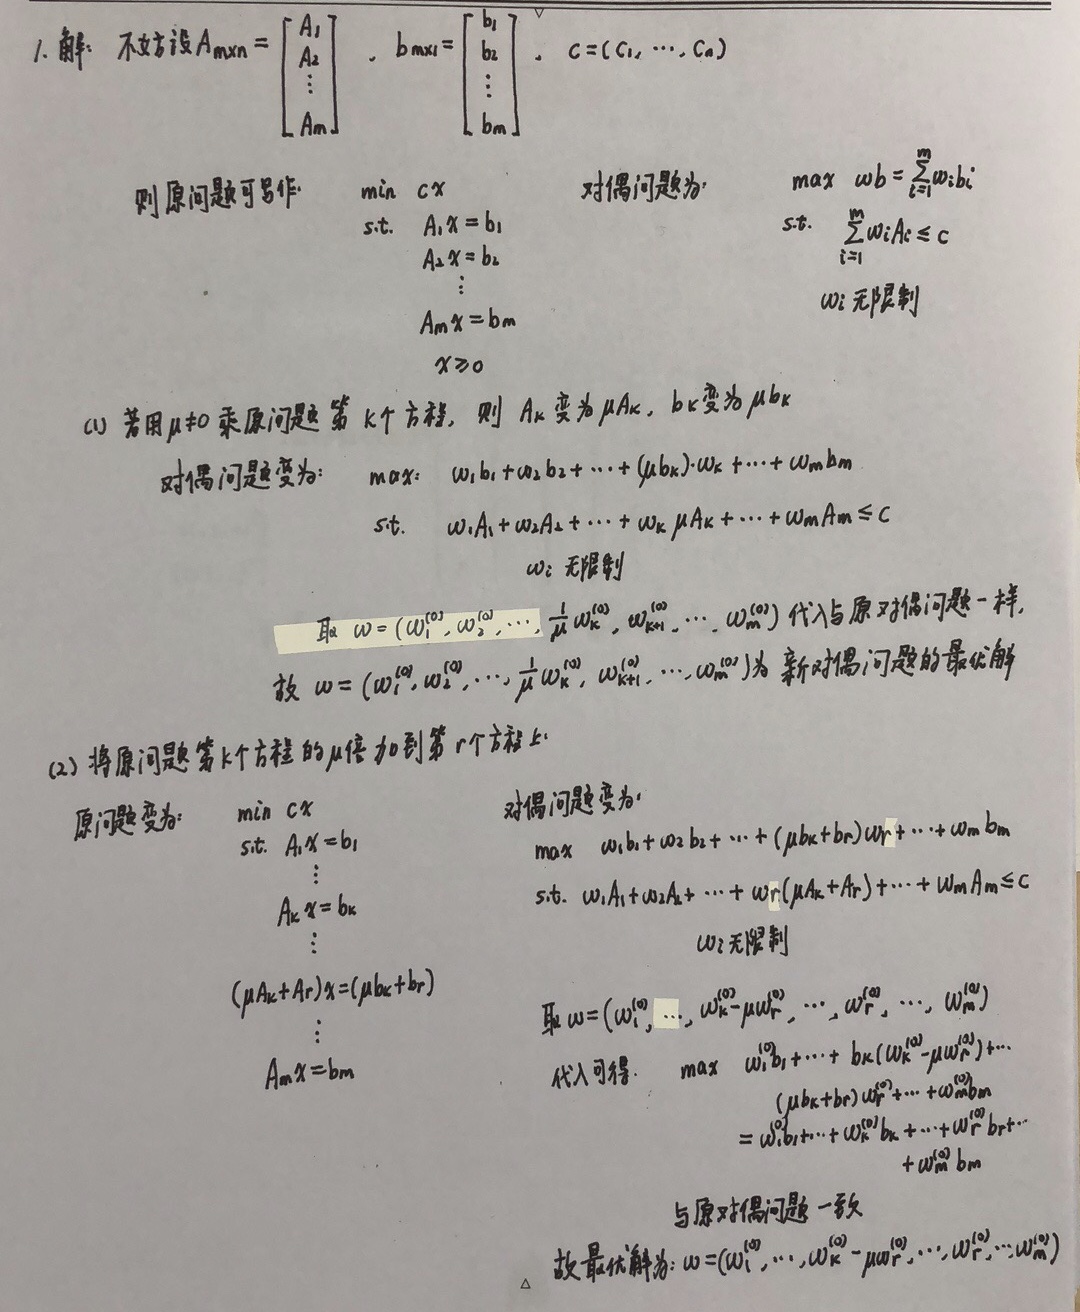 1. 解: 不妨设 Am×n = [A1 A2 ⋮ Am] , bm×1 = [b1 b2 ⋮ bm] , c = (C1, ⋯, Cn)
则原问题可写作: min cx
s.t. A1x = b1
A2x = b2
⋮
Amx = bm
x ≥ 0
对偶问题为: max ωb = ∑_{i=1}^{m} ωibi
s.t. ∑_{i=1}^{m} ωiAi ≤ c
ωi 无限制
(1) 若用 μ≠0 乘原问题第 k个方程, 则 Ak 变为 μAk, bk变为 μbk
对偶问题变为: max: ω1b1 + ω2b2 + ⋯ + (μbk)·ωk + ⋯ + ωmbm
s.t. ω1A1 + ω2A2 + ⋯ + ωk μAk + ⋯ + ωmAm ≤ c
ωi 无限制
取 ω = (ω1^(0), ω2^(0), ⋯, 1/μ ωk^(0), ωk+1^(0), ⋯, ωm^(0)) 代入与原对偶问题一样,
故 ω = (ω1^(0), ω2^(0), ⋯, 1/μ ωk^(0), ωk+1^(0), ⋯, ωm^(0))为 新对偶问题的最优解
(2) 将原问题第k个方程的μ倍加到第 r个方程上.
原问题变为: min cx
s.t. A1x = b1
⋮
Akx = bk
⋮
(μAk+Ar)x = (μbk+br)
⋮
Amx = bm
对偶问题变为:
max ω1b1 + ω2b2 + ⋯ + (μbk+br)ωr + ⋯ + ωmbm
s.t. ω1A1 + ω2A2 + ⋯ + ωr(μAk+Ar) + ⋯ + ωmAm ≤ c
ωi 无限制
取 ω = (ω1^(0), ⋯, ωk^(0) - μωr^(0), ⋯, ωr^(0), ⋯, ωm^(0))
代入可得. max ω1^(0)b1 + ⋯ + bk(ωk^(0) - μωr^(0)) + ⋯
(μbk+br)ωr^(0) + ⋯ + ωm^(0)bm
= ω1^(0)b1 + ⋯ + ωk^(0)bk + ⋯ + ωr^(0)br + ⋯
+ ωm^(0)bm
与原对偶问题一致
故最优解为: ω = (ω1^(0), ⋯, ωk^(0) - μωr^(0), ⋯, ωr^(0), ⋯ ωm^(0))